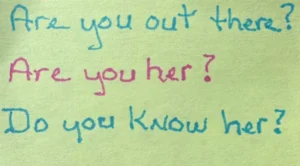 Are you out there?
Are you her?
Do you know her?